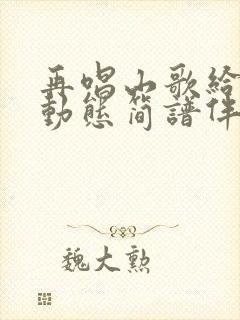 再唱山歌給
動態簡譜伴
魏大勲